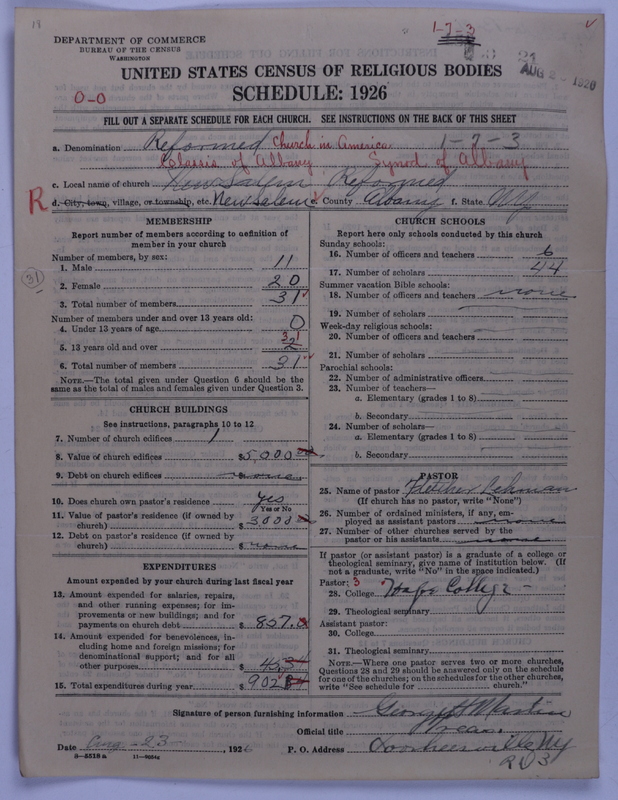 18
1-7-3
DEPARTMENT OF COMMERCE
BUREAU OF THE CENSUS
WASHINGTON
AUG 2 1926
UNITED STATES CENSUS OF RELIGIOUS BODIES
SCHEDULE: 1926
0-0
FILL OUT A SEPARATE SCHEDULE FOR EACH CHURCH. SEE INSTRUCTIONS ON THE BACK OF THIS SHEET
a. Denomination Reformed Church in America 1-7-3
Classis of Albany Synod of Albany
c. Local name of church New Salem Reformed
R d. City, town, village, or township, etc. New Salem e. County Albany f. State NY
MEMBERSHIP
Report number of members according to definition of
member in your church
Number of members, by sex:
1. Male 11
2. Female 20
31
3. Total number of members 31
Number of members under and over 13 years old:
4. Under 13 years of age 0
5. 13 years old and over 31
6. Total number of members 31
NOTE.—The total given under Question 6 should be the
same as the total of males and females given under Question 3.
CHURCH BUILDINGS
See instructions, paragraphs 10 to 12
7. Number of church edifices 1
8. Value of church edifices $5,000
9. Debt on church edifices $ none
10. Does church own pastor's residence yes
Yes or No
11. Value of pastor's residence (if owned by
church) $ 3000
12. Debt on pastor's residence (if owned by
church) $ none
EXPENDITURES
Amount expended by your church during last fiscal year
13. Amount expended for salaries, repairs,
and other running expenses; for im-
provements or new buildings; and for
payments on church debt $ 857.
14. Amount expended for benevolences, in-
cluding home and foreign missions; for
denominational support; and for all
other purposes $ 45
15. Total expenditures during year $ 902
CHURCH SCHOOLS
Report here only schools conducted by this church
Sunday schools:
16. Number of officers and teachers 6
17. Number of scholars 44
Summer vacation Bible schools:
18. Number of officers and teachers none
19. Number of scholars
Week-day religious schools:
20. Number of officers and teachers
21. Number of scholars
Parochial schools:
22. Number of administrative officers
23. Number of teachers—
a. Elementary (grades 1 to 8)
b. Secondary
24. Number of scholars—
a. Elementary (grades 1 to 8)
b. Secondary
PASTOR
25. Name of pastor
(If church has no pastor, write "None")
26. Number of ordained ministers, if any, em-
ployed as assistant pastors none
27. Number of other churches served by the
pastor or his assistants none
If pastor (or assistant pastor) is a graduate of a college or
theological seminary, give name of institution below. (If
not a graduate, write "No" in the space indicated.)
Pastor: 3
28. College Hope College
29. Theological seminary
Assistant pastor:
30. College
31. Theological seminary
NOTE.—Where one pastor serves two or more churches,
Questions 28 and 29 should be answered only on the schedule
for one of the churches; on the schedules for the other churches,
write "See schedule for church."
Signature of person furnishing information George H Martin
Official title Treas.
Date Aug-23-, 1926 P. O. Address Voorheesville NY
8-5518a 11-9054g
RD 3